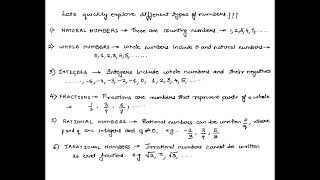 Lets quickly explore different types of numbers!!!
1) NATURAL NUMBERS → These are counting numbers → 1, 2, 3, 4, 5, .....
2) WHOLE NUMBERS → Whole numbers include 0 and natural numbers →
0, 1, 2, 3, 4, 5, .....
3) INTEGERS → Integers include whole numbers and their negatives
....., -4, -3, -2, -1, 0, 1, 2, 3, 4, 5, ....
4) FRACTIONS → Fractions are numbers that represent parts of a whole
→ 1/2, 3/4,
5) RATIONAL NUMBERS → Rational numbers can be written p/q, where
p and q are integers and q≠0. e.g. -2/3, 3/4, 5/3
6) IRRATIONAL NUMBERS → Irrational numbers cannot be written
as exact fractions. e.g √2, π, √3, ....